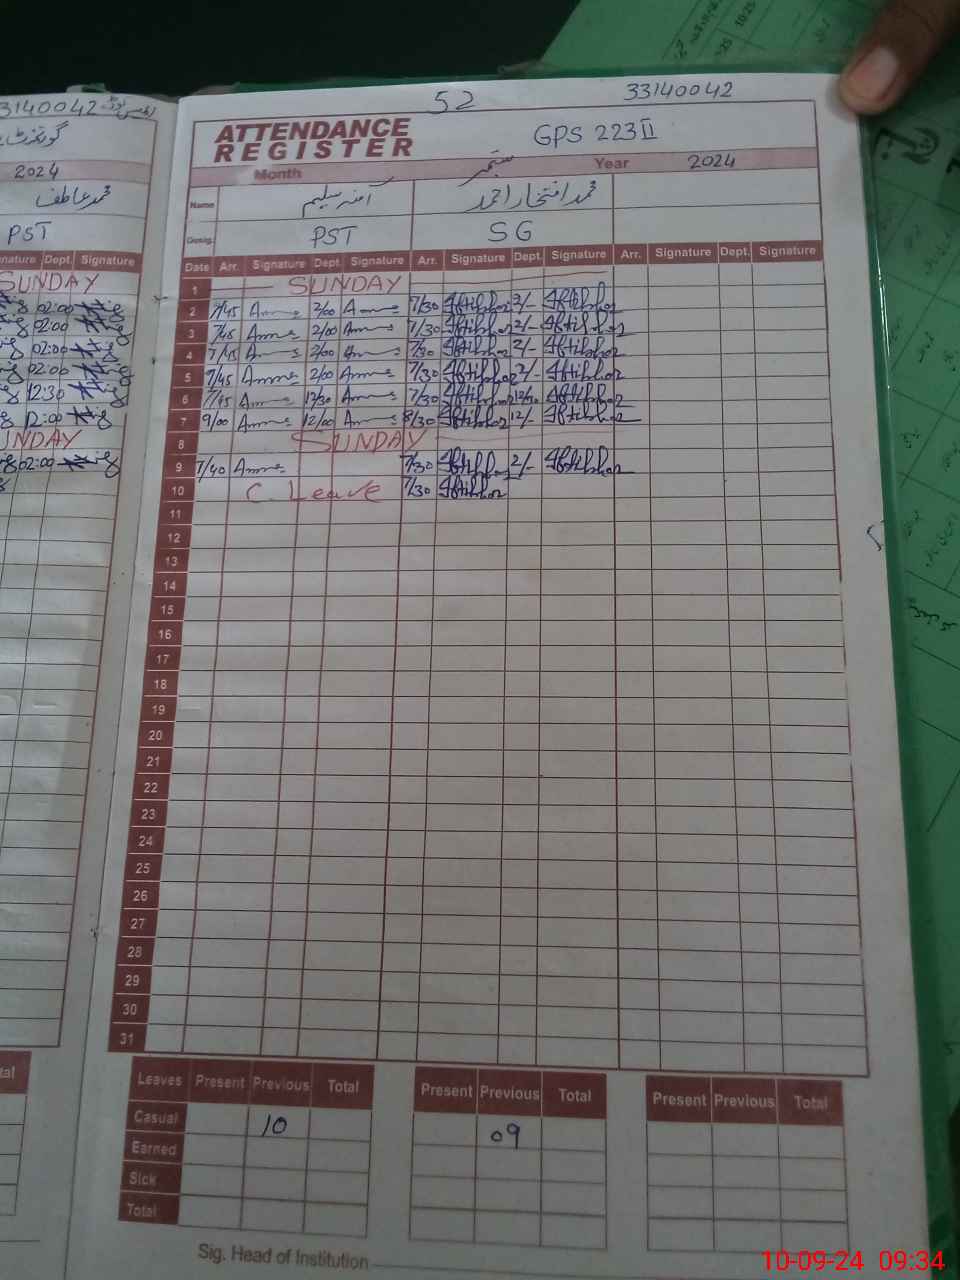 33140042
2024
محمد عاطف
PST
Signature Dept. Signature
SUNDAY
02:00
02:00
02:00
02:00
12:30
12:00
SUNDAY
02:00
52 33140042
ATTENDANCE
REGISTER
GPS 223 II
Month ستمبر Year 2024
Name آمنہ سلیم محمد افتخار احمد
Desig. PST SG
Date Arr. Signature Dept. Signature Arr. Signature Dept. Signature Arr. Signature Dept. Signature
1 SUNDAY
2 7/45 Amna 2/00 Amna 7/30 Iftikhar 2/- Iftikhar
3 7/45 Amna 2/00 Amna 7/30 Iftikhar 2/- Iftikhar
4 7/45 Amna 2/00 Amna 7/30 Iftikhar 2/- Iftikhar
5 7/45 Amna 2/00 Amna 7/30 Iftikhar 2/- Iftikhar
6 7/45 Amna 12/30 Amna 7/30 Iftikhar 12/30 Iftikhar
7 9/00 Amna 12/00 Amna 8/30 Iftikhar 12/- Iftikhar
8 SUNDAY
9 7/40 Amna 7/30 Iftikhar 2/- Iftikhar
10 C. Leave 7/30 Iftikhar
11
12
13
14
15
16
17
18
19
20
21
22
23
24
25
26
27
28
29
30
31
Leaves Present Previous Total Present Previous Total Present Previous Total
Casual 10 09
Earned
Sick
Total
Sig. Head of Institution
10-09-24 09:34